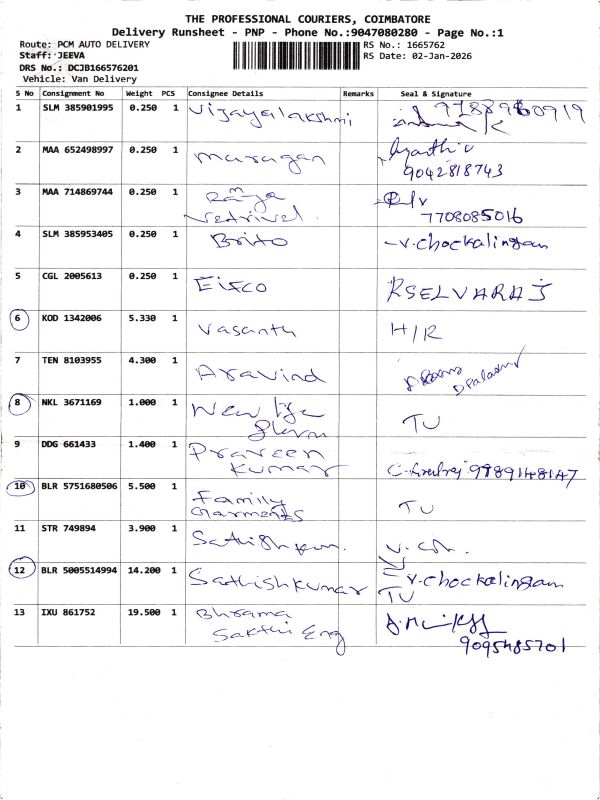 THE PROFESSIONAL COURIERS, COIMBATORE
Delivery Runsheet - PNP - Phone No.:9047080280 - Page No.:1
Route: PCM AUTO DELIVERY
Staff: JEEVA
DRS No.: DCJB166576201
Vehicle: Van Delivery
RS No.: 1665762
RS Date: 02-Jan-2026
S No Consignment No Weight PCS Consignee Details Remarks Seal & Signature
1 SLM 385901995 0.250 1 Vijayalakshmi
2 MAA 652498997 0.250 1 Murugan
9042818743
3 MAA 714869744 0.250 1
Vetrivel
7708085016
4 SLM 385953405 0.250 1 Brito V.Chockalingam
5 CGL 2005613 0.250 1 RSELVARAJ
6 KOD 1342006 5.330 1 Vasanth H/R
7 TEN 8103955 4.300 1 Aravind
8 NKL 3671169 1.000 1 New life
TU
9 DDG 661433 1.400 1 Praveen
Kumar 9789148147
10 BLR 5751680506 5.500 1 Family
Garments TU
11 STR 749894 3.900 1
12 BLR 5005514994 14.200 1 Sathishkumar V.Chockalingam
TU
13 IXU 861752 19.500 1 Bhrama
Sakthi Eng
9095485701